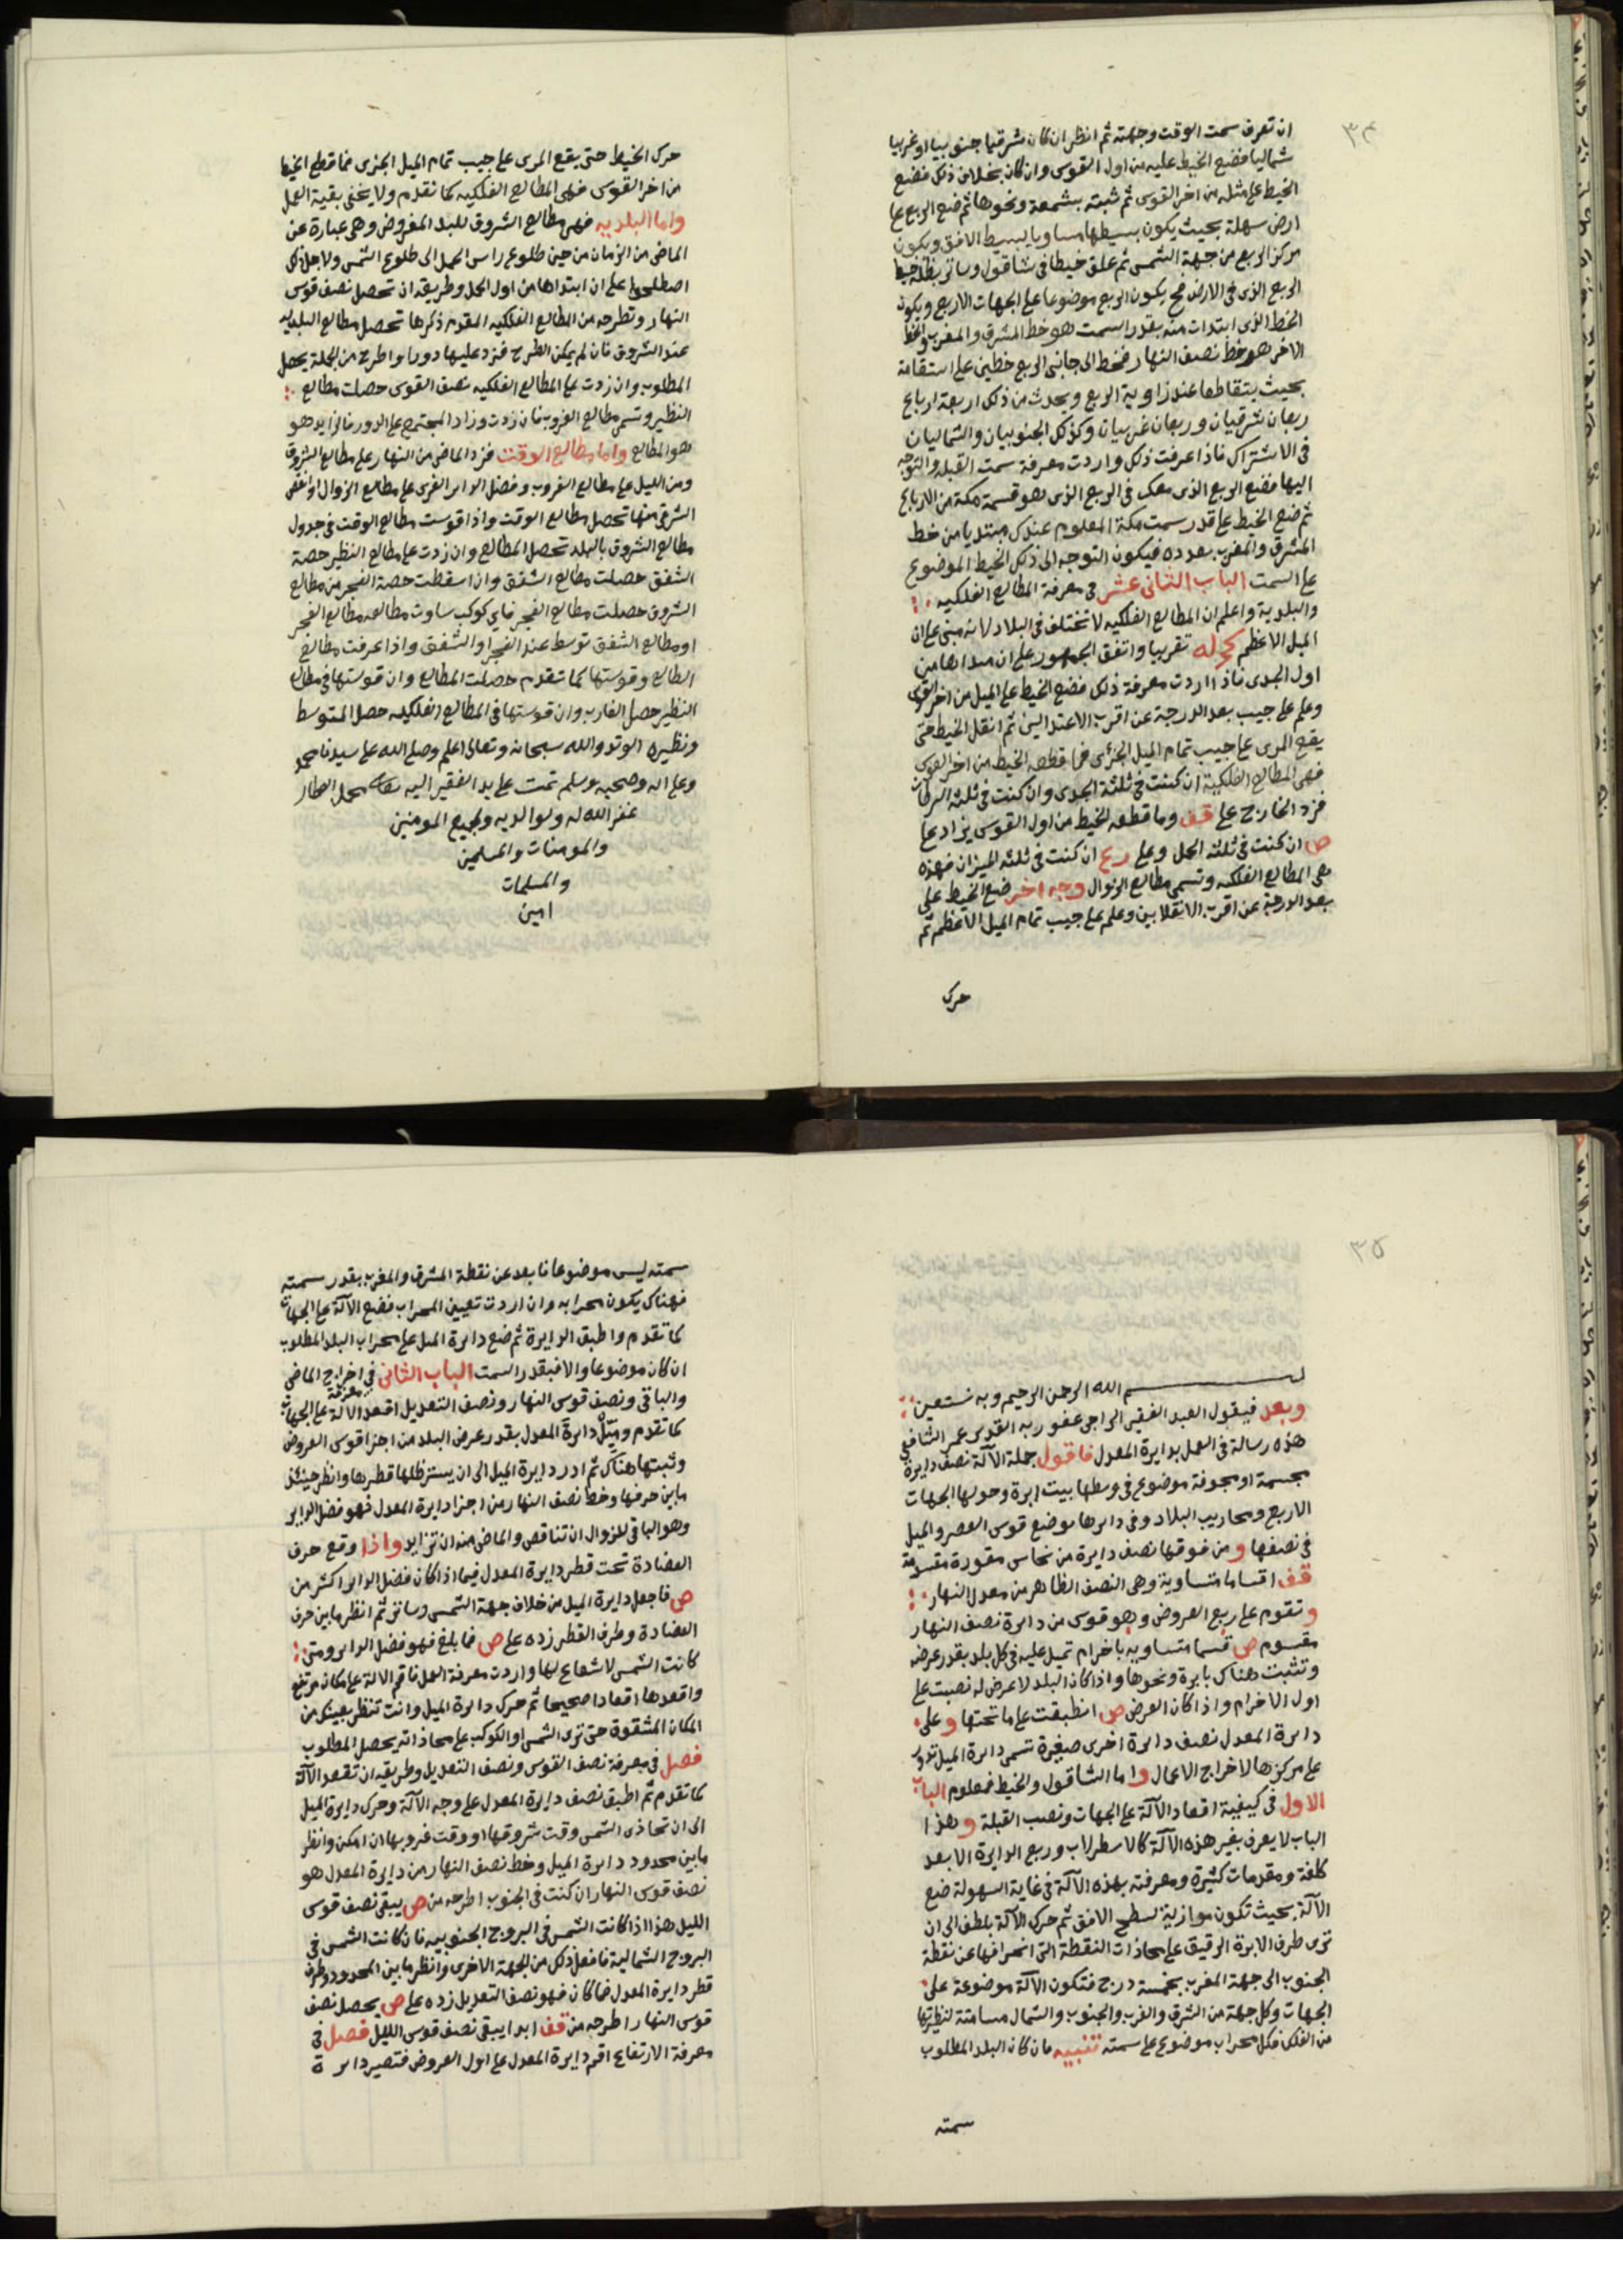 ٣٤
ان تعرف سمت الوقت وجهته ثم انظر ان كان شرقيا جنوبيا او غربيا
شماليا فضع الخيط عليه من اول القوس وان كان بخلاف ذلك فضع
الخيط على مثله من اخر القوس ثم ثبته بشمعة ونحوها ثم ضع الربع على
ارض سهلة بحيث يكون بسيطها مساويا لبسيط الافق ويكون
مركز الربع من جهة الشمس ثم علق خيطا في شاقول وساتر بظله خيط
الربع الذى في الارض فح يكون الربع موضوعا على الجهات الاربع ويكون
الخط الذى ابتدات منه بقدر السمت هو خط المشرق والمغرب والخط
الاخر هو خط نصف النهار فخط الى جانبى الربع خطين على استقامة
بحيث يتقاطعا عند زاوية الربع ويحدث من ذلك اربعة ارباع
ربعان شرقيان وربعان غربيان وكذلك الجنوبيان والشماليان
في الاشتراك فاذا عرفت ذلك واردت معرفة سمت القبلة والتوجه
اليها فضع الربع الذى معك في الربع الذى هو قسمة مكة من الارباع
ثم ضع الخيط على قدر سمت مكة المعلوم عندك مبتديا من خط
المشرق والمغرب بعدده فيكون التوجه الى ذلك الخيط الموضوع
على السمت الباب الثانى عشر في معرفة المطالع الفلكيه
والبلدية واعلم ان المطالع الفلكيه لا تختلف في البلاد لانه مبنى على ان
الميل الاعظم كج له تقريبا واتفق الجمهور على ان مبداها من
اول الجدى فاذا اردت معرفة ذلك فضع الخيط على الميل من اخر القوس
وعلم على جيب بعد الدرجة عن اقرب الاعتدالين ثم انقل الخيط حتى
يقع المرى على جيب تمام الميل الجزئى فما قطعه الخيط من اخر القوس
فهى المطالع الفلكية ان كنت في ثلثة الجدى وان كنت في ثلثه السرطان
فزد الخارج على قف وما قطعه الخيط من اول القوس يزاد على
ص ان كنت في ثلثه الحمل وعلى رع ان كنت في ثلثه الميزان فهذه
هى المطالع الفلكيه وتسمى مطالع الزوال وجه اخر ضع الخيط على
بعد الدرجة عن اقرب الانقلابين وعلم على جيب تمام الميل الاعظم ثم
حرك
حرك الخيط حتى يقع المرى على جيب تمام الميل الجزى فما قطع الخيط
من اخر القوس فهى المطالع الفلكيه كما تقدم ولا يخفى بقية العمل
واما البلديه فهى مطالع الشروق للبلد المفروض وهى عبارة عن
الماضى من الزمان من حين طلوع راس الحمل الى طلوع الشمس ولاجل ذلك
اصطلحوا على ان ابتداها من اول الحمل وطريقه ان تحصل نصف قوس
النهار وتطرحه من المطالع الفلكيه المقدم ذكرها تحصل مطالع البلديه
عند الشروق فان لم يمكن الطرح فزد عليها دورا واطرح من الجملة يحصل
المطلوب وان زدت على المطالع الفلكيه نصف القوس حصلت مطالع
النظير وتسمى مطالع الغروب فان زدت وزاد المجتمع على الدور فالزايد هو
هو المطالع واما مطالع الوقت فزد الماضى من النهار على مطالع الشروق
ومن الليل على مطالع الغروب وفضل الداير الغربى على مطالع الزوال او انقص
الشرقى منها تحصل مطالع الوقت واذا قوست مطالع الوقت في جدول
مطالع الشروق بالبلد تحصل المطالع وان زدت على مطالع النظير حصة
الشفق حصلت مطالع الشفق وان اسقطت حصة الفجر من مطالع
الشروق حصلت مطالع الفجر فاى كوكب ساوت مطالعه مطالع الفجر
او مطالع الشفق توسط عند الفجر او الشفق واذا عرفت مطالع
الطالع وقوستها كما تقدم حصلت المطالع وان قوستها في مطالع
النظير حصل الغارب وان قوستها في المطالع الفلكيه حصل المتوسط
ونظيره الوتد والله سبحانه وتعالى اعلم وصلى الله على سيدنا محمد
وعلى اله وصحبه وسلم تمت على يد الفقير اليه محمد العطار
غفر الله له ولوالديه ولجميع المومنين
والمومنات والمسلمين
والمسلمات
امين
٣٥
بسم الله الرحمن الرحيم وبه نستعين
وبعد فيقول العبد الفقير الراجى عفو ربه القدير عمر الشافعى
هذه رسالة في العمل بدايرة المعدل فاقول جملة الآلة نصف دايرة
مجسمة او مجوفة موضوع في وسطها بيت ابرة وحولها الجهات
الاربع ومحاريب البلاد وفى دايرها موضع قوس العصر والميل
في نصفها ومن فوقها نصف دايرة من نحاس مقورة مقسومة
قف اقساما متساوية وهى النصف الظاهر من معدل النهار
وتقوم على ربع العروض وهو قوس من دايرة نصف النهار
مقسوم ص قسما متساويه باخرام تميل عليه في كل بلد بقدر عرضه
وتثبت هناك بابرة ونحوها واذا كان البلد لا عرض له نصبت على
اول الاخرام واذا كان العرض ص انطبقت على ما تحتها وعلى
دايرة المعدل نصف دايرة اخرى صغيرة تسمى دايرة الميل تدور
على مركزها لاخراج الاعمال واما الشاقول والخيط فمعلوم الباب
الاول في كيفية اقعاد الآلة على الجهات ونصب القبلة وهذا
الباب لا يعرف بغير هذه الآلة كالاسطرلاب وربع الدايرة الا بعد
كلفة ومقدمات كثيرة ومعرفته بهذه الآلة في غاية السهولة ضع
الآلة بحيث تكون موازية لسطح الافق ثم حرك الآلة بلطف الى ان
ترى طرف الابرة الرقيق على محاذات النقطة التى انحرافها عن نقطة
الجنوب الى جهة المغرب بخمسة درج فتكون الآلة موضوعة على
الجهات وكل جهة من الشرق والغرب والجنوب والشمال مسامتة لنظيرتها
من الفلك فكل محراب موضوع على سمته تنبيه فان كان البلد المطلوب
سمته
سمته ليس موضوعا فابعد عن نقطة المشرق والمغرب بقدر سمته
فهناك يكون محرابه وان اردت تعيين المحراب فضع الآلة على الجهات
كما تقدم واطبق الدايرة ثم ضع دايرة الميل على محراب البلد المطلوب
ان كان موضوعا والا فبقدر السمت الباب الثانى في اخراج الماضى
والباقى ونصف قوس النهار ونصف التعديل اقعد الآلة معرفة على الجهات
كما تقدم وميّل دايرة المعدل بقدر عرض البلد من اجزا قوس العروض
وثبتها هناك ثم ادر دايرة الميل الى ان يستتر ظلها قطرها وانظر حينئذ
مابين حرفها وخط نصف النهار من اجزا دايرة المعدل فهو فضل الداير
وهو الباقى للزوال ان تناقص والماضى منه ان تزايد واذا وقع حرف
العضادة تحت قطر دايرة المعدل فيما اذا كان فضل الداير اكثر من
ص فاجعل دايرة الميل من خلاف جهة الشمس وساتر ثم انظر مابين حرف
العضادة وطرف القطر زده على ص فما بلغ فهو فضل الداير ومتى
كانت الشمس لا شعاع لها واردت معرفة العمل فاقم الآلة على مكان مرتفع
واقعدها اقعادا صحيحا ثم حرك دايرة الميل وانت تنظر بعينك من
المكان المشقوة حتى ترى الشمس او الكوكب على محاذاته يحصل المطلوب
فصل في معرفة نصف القوس ونصف التعديل وطريقه ان تقعد الآلة
كما تقدم ثم اطبق نصف دايرة المعدل على وجه الآلة وحرك دايرة الميل
الى ان تحاذى الشمس وقت شروقها او وقت غروبها ان امكن وانظر
مابين محدود دايرة الميل وخط نصف النهار من دايرة المعدل هو
نصف قوس النهار ان كنت في الجنوب اطرحه من ص يبقى نصف قوس
الليل هذا اذا كانت الشمس في البروج الجنوبيه فان كانت الشمس في
البروج الشمالية فافعل ذلك من الجهة الاخرى وانظر مابين المحدود وطرف
قطر دايرة المعدل فما كان فهو نصف التعديل زده على ص يحصل نصف
قوس النهار اطرحه من قف ابدا يبقى نصف قوس الليل فصل في
معرفة الارتفاع اقم دايرة المعدل على اول العروض فتصير دايرة